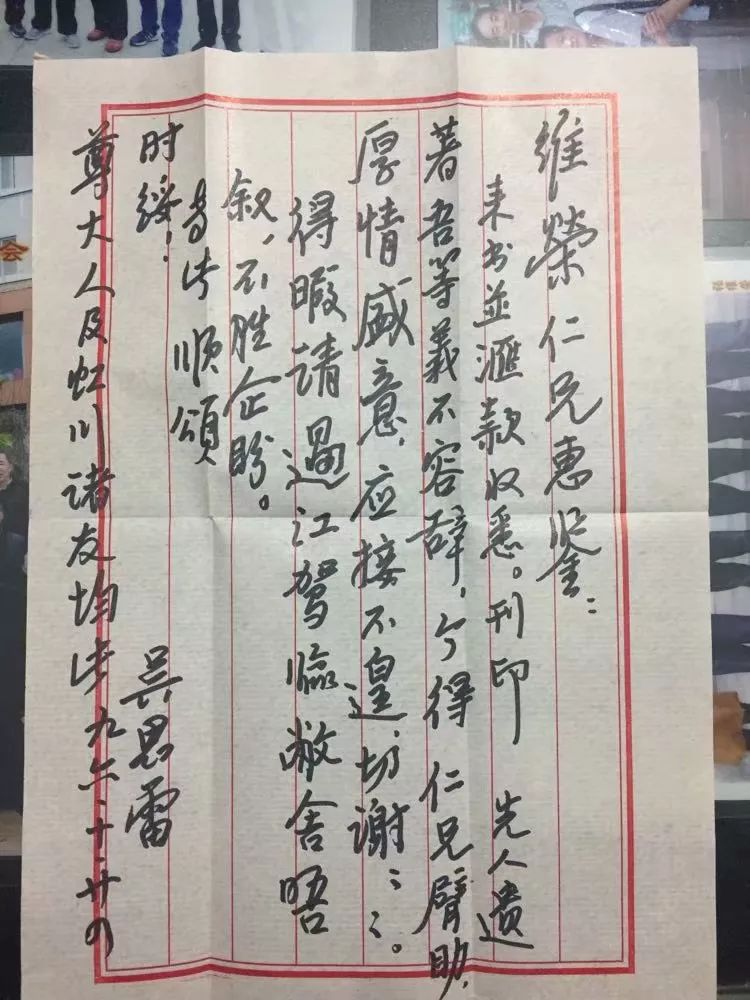 維榮仁兄惠鉴：
来书並滙款收悉。刊印 先人遗
著吾等義不容辞，今得 仁兄臂助，
厚情盛意，应接不遑，切谢〻。
得暇请過江驾临敝舍晤
叙，不胜企盼。
专此 順頌
时绥！
吴思雷
尊大人及虹川诸友均此 九六、十、廿四